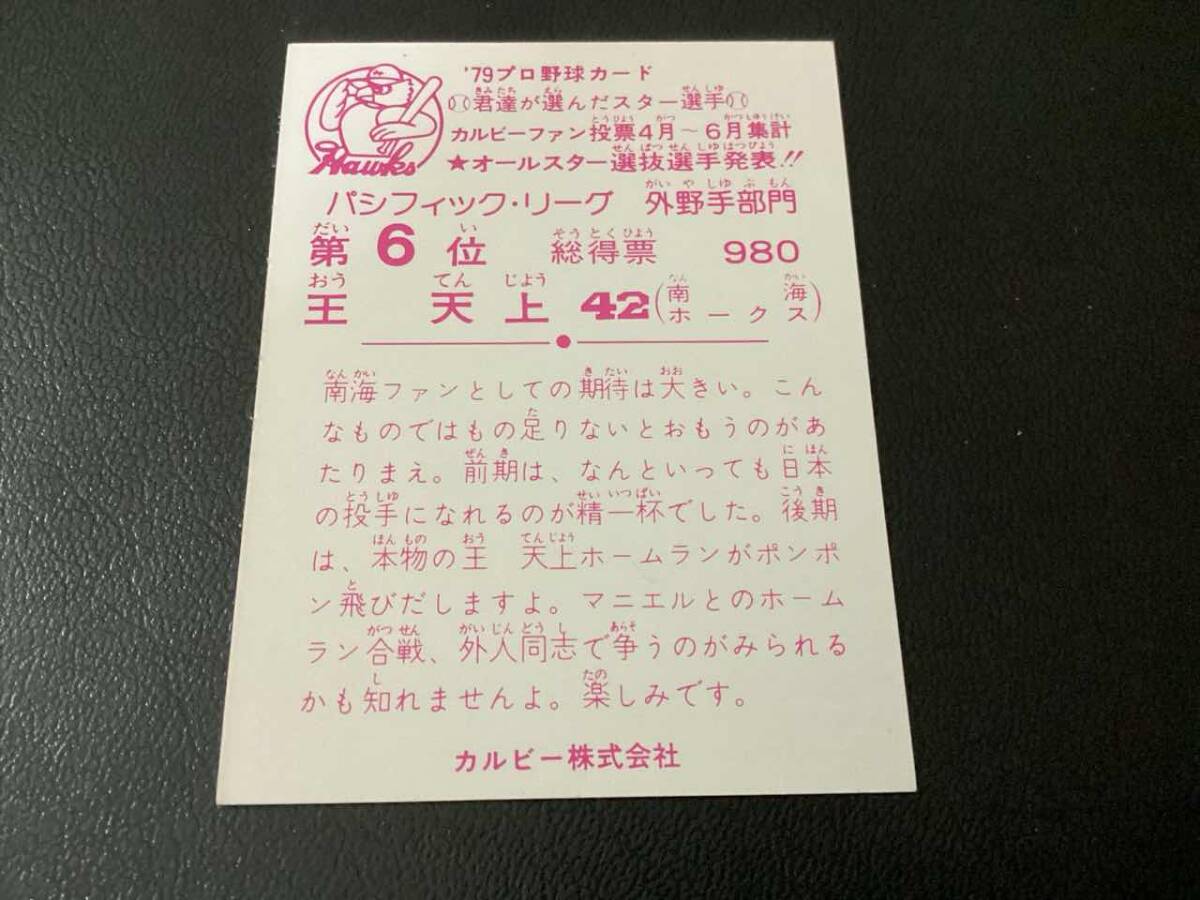 Hawks
'79プロ野球カード
君達が選んだスター選手
カルビーファン投票4月～6月集計
★オールスター選抜選手発表!!
パシフィック・リーグ 外野手部門
第6位 総得票 980
王 天上 42(南海ホークス)
南海ファンとしての期待は大きい。こん
なものではもの足りないとおもうのがあ
たりまえ。前期は、なんといっても日本
の投手になれるのが精一杯でした。後期
は、本物の王 天上ホームランがポンポ
ン飛びだしますよ。マニエルとのホーム
ラン合戦、外人同志で争うのがみられる
かも知れませんよ。楽しみです。
カルビー株式会社